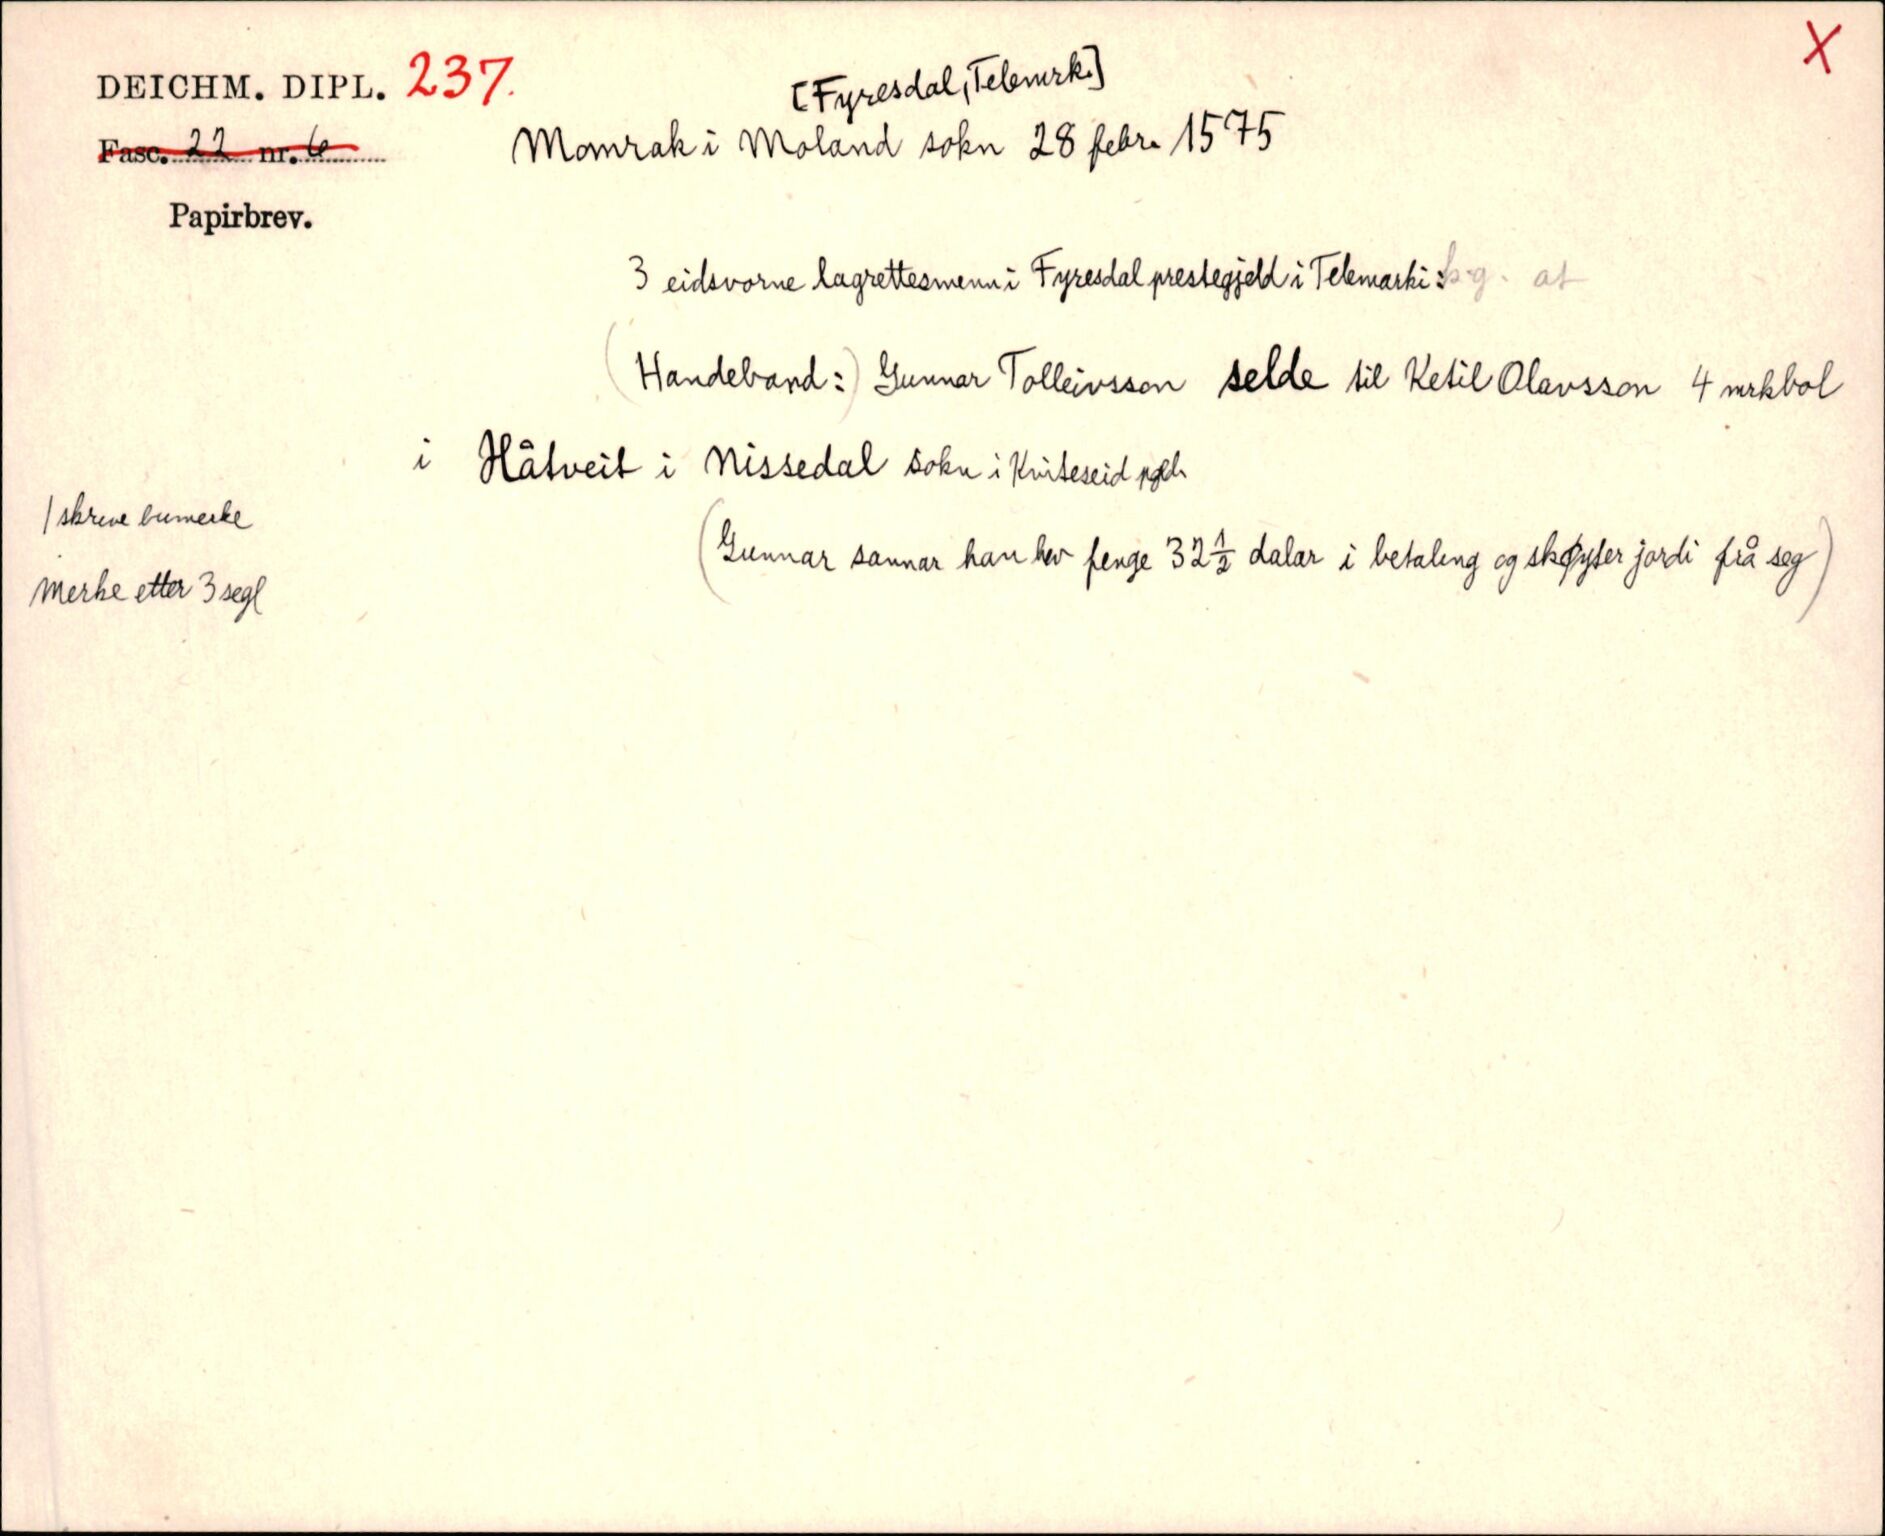 DEICHM. DIPL. 237.
X
[Fyresdal, Telemrk.]
Fasc. 22 nr. 6
Momrak i Moland sokn 28 febr. 1575
Papirbrev.
3 eidsvorne lagrettesmenn i Fyresdal prestegjeld i Telemarki: k.g. at
(Handeband:) Gunnar Tolleivsson selde til Ketil Olavsson 4 mrkbol
i Håtveit i Nissedal sokn i Kviteseid pgld.
1 skreve bumerke
(Gunnar sannar han hev fenge 32 1/2 dalar i betaling og skøyter jordi frå seg)
Merke etter 3 segl